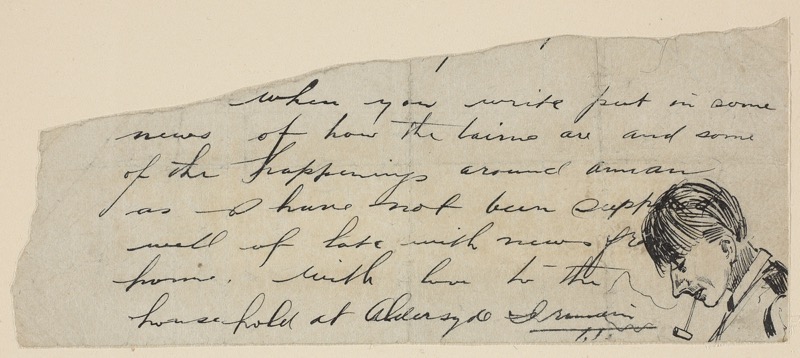 when you write put in some
news of how the bairns are and some
of the happenings around annan
as I have not been supplied
well of late with news from
home. With love to the
household at Aldersyde I remain